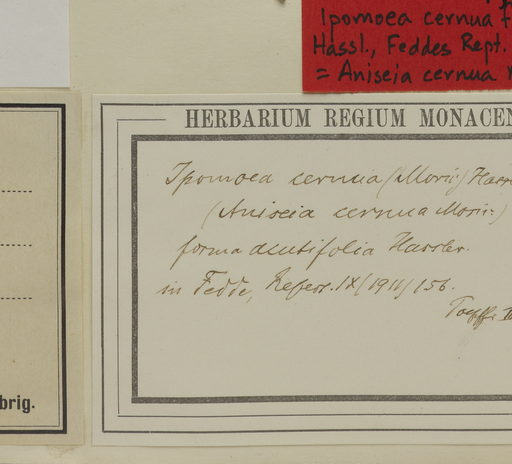 Ipomoea cernua f
Hassl., Feddes Rept.
= Aniseia cernua
HERBARIUM REGIUM MONACEN
Ipomoea cernua (Moric.) Hassl
(Aniseia cernua Moric.)
forma acutifolia Hassler.
in Fedde, Repert. IX (1911) 156.
brig.